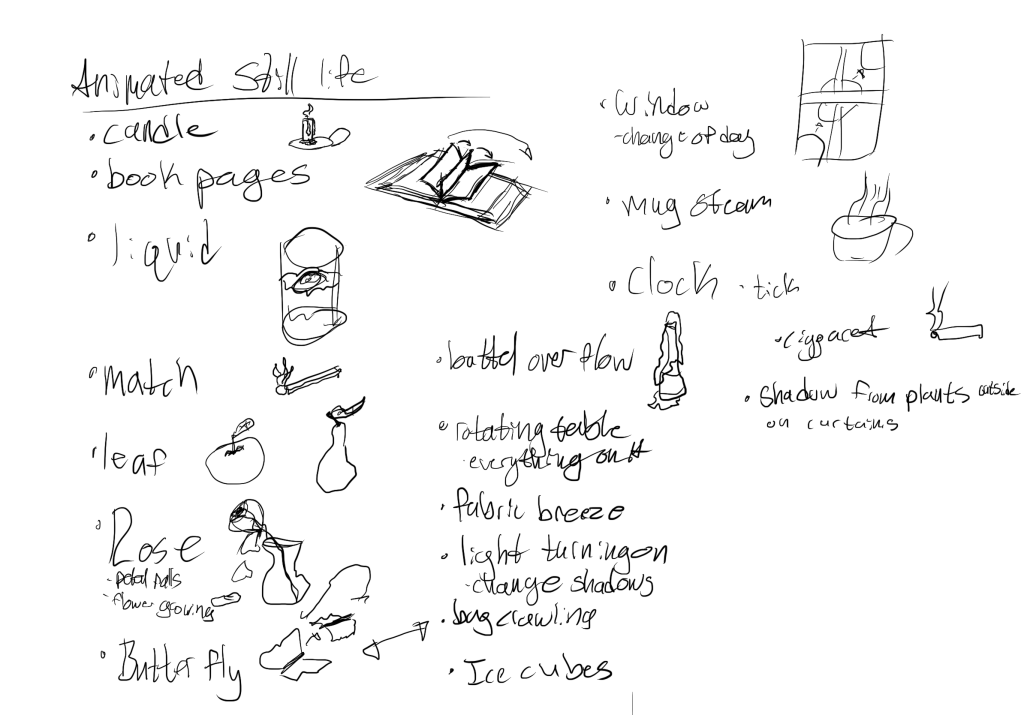 Animated Still life
• candle
• book pages
• liquid
• match
• leaf
• Rose
- petal falls
- flower growing
• Butterfly
• battel over flow
• rotating table
- everything on it
• fabric breeze
• light turning on
- change shadows
• bug crawling
• Ice cubes
• Window
- change of day
• mug steam
• Clock - tick
• ciggaret
• shadow from plants outside
on curtains